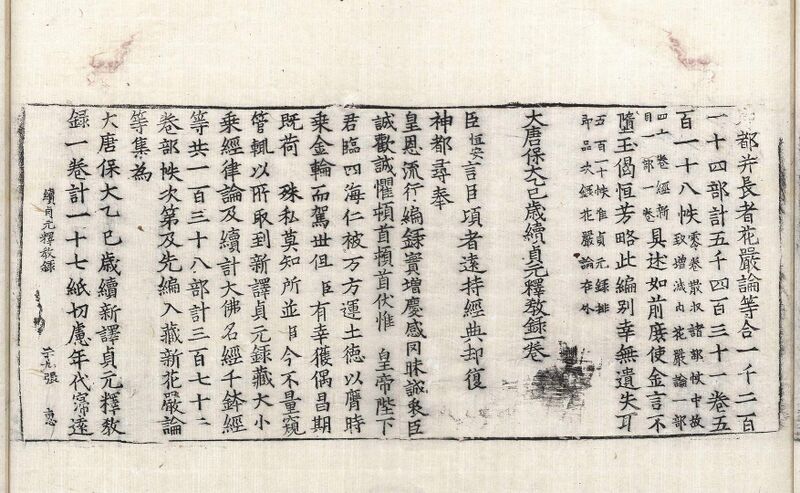 都并長者花嚴論等合一千二百
一十四部計五千四百三十一卷五
百一十八帙零卷散收諸部帙中故
致增減内花嚴論一部
四十卷經新
目一部一卷具述如前庶使金言不
墮玉偈恒芳略此編別幸無遺失耳
五百一十帙准貞元錄排
即品次花嚴論在外
大唐保大乙巳歲續貞元釋教錄一卷
臣恒安言臣頃者遠持經典却復
神都尋奉
皇恩流行編錄實增慶感罔昧誠衷臣
誠歡誠懼頓首頓首伏惟 皇帝陛下
君臨四海仁被万方運土德以膺時
乘金輪而駕世但臣有幸獲偶昌期
既荷 殊私莫知所並臣今不量窺
管輒以所取到新譯貞元錄藏大小
乘經律論及續計大佛名經千鉢經
等共一百三十八部計三百七十二
卷部帙次第及先編入藏新花嚴論
等集為
大唐保大乙巳歲續新譯貞元釋教
錄一卷計一十七紙切慮年代寖遠
續貞元釋教錄 九張